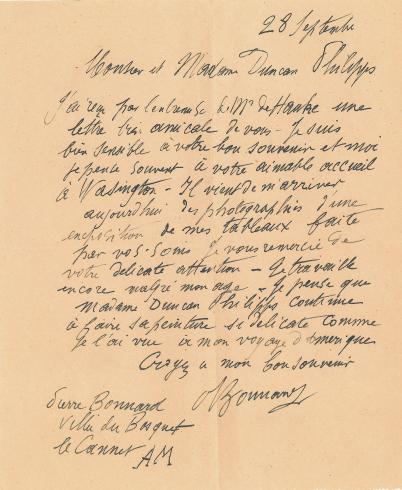 28 Septembre
Monsieur et Madame Duncan Philipps
J'ai reçu par l'entremise de Mr de Hauke une
lettre très amicale de vous - Je suis
bien sensible à votre bon souvenir et moi
je pense souvent à votre aimable accueil
à Wasington - Il vient de m'arriver
aujourdhui des photographies d'une
exposition de mes tableaux faite
par vos soins Je vous remercie de
votre délicate attention - Je travaille
encore malgré mon age - Je pense que
Madame Duncan Philipps continue
à faire sa peinture si délicate comme
je l'ai vue à mon voyage d'Amérique
Croyez à mon bon souvenir
PBonnard
Pierre Bonnard
Villa du Bosquet
le Cannet
AM